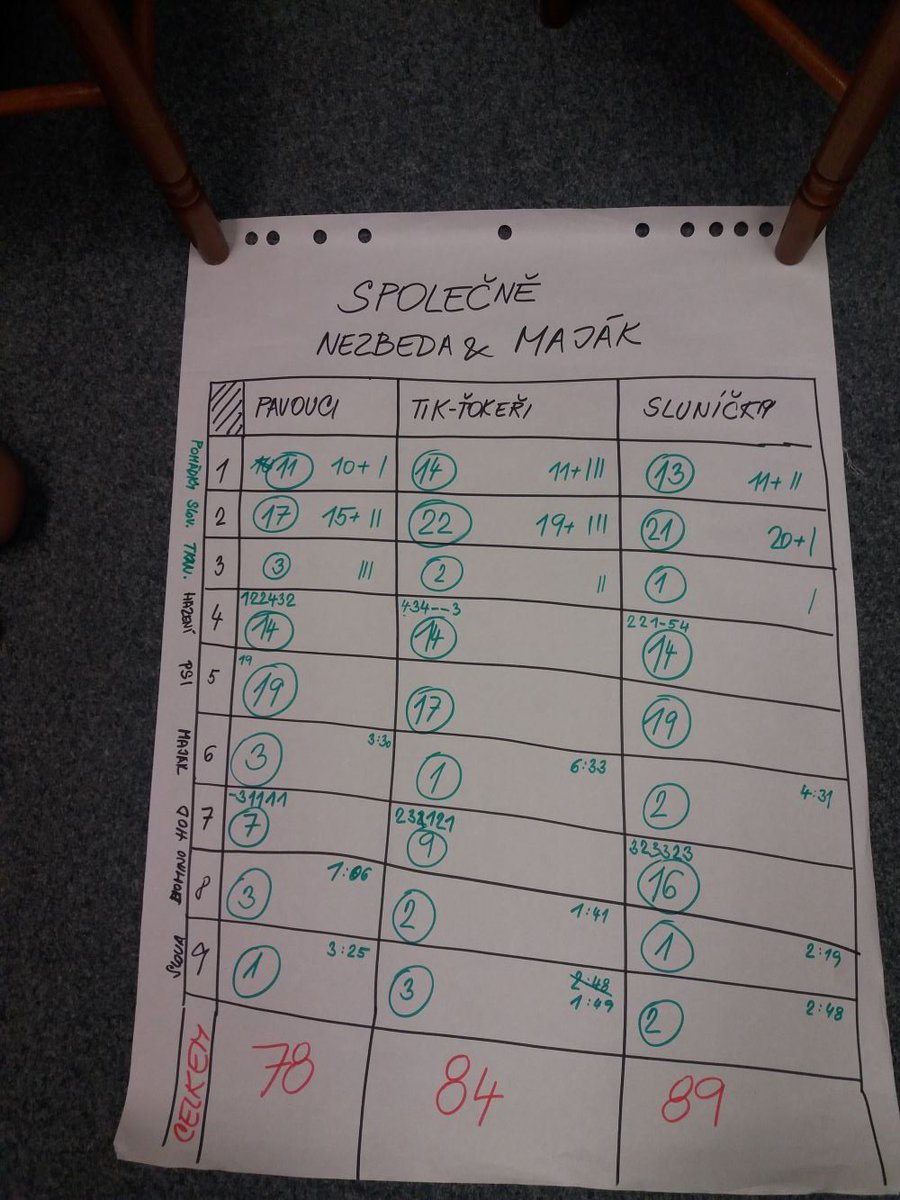 SPOLEČNĚ
NEZBEDA & MAJÁK
PAVOUCI TIK-ŤOKEŘI SLUNÍČKA
1 11 10+ I 14 11+ III 13 11+ II
2 17 15+ II 22 19+ III 21 20+ I
3 3 III 2 II 1 I
HÁZENÍ 4 122432 14 434--3 14 221-54 14
PSI 5 19 19 17 19
MAJÁK 6 3 3:30 1 6:33 2 4:31
7 -31111 7 232121 9 323323 16
8 3 1:06 2 1:41 1 2:19
SLOVA 9 1 3:25 3 2:48 1:49 2 2:48
CELKEM 78 84 89